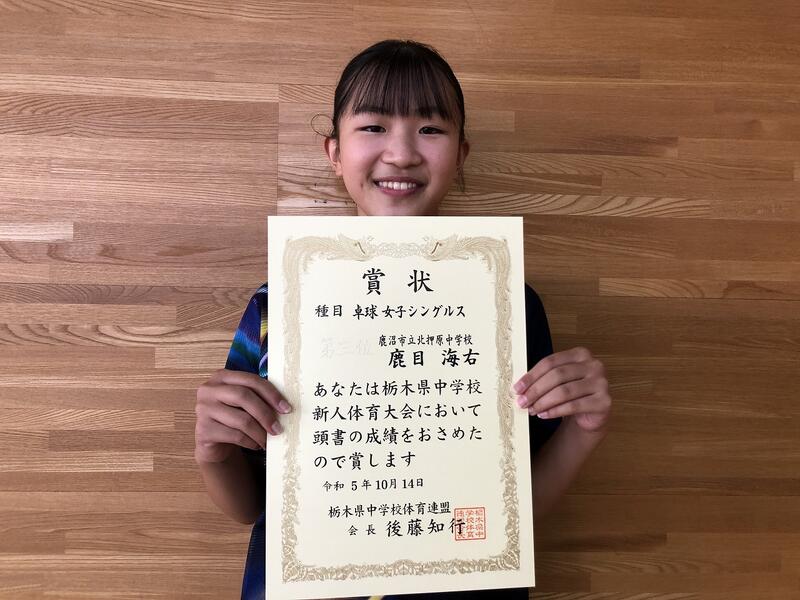 賞状
種目 卓球 女子シングルス
第三位
鹿沼市立北押原中学校
鹿目 海右
あなたは栃木県中学校
新人体育大会において
頭書の成績をおさめた
ので賞します
令和5年10月14日
栃木県中学校体育連盟
会長 後藤知行